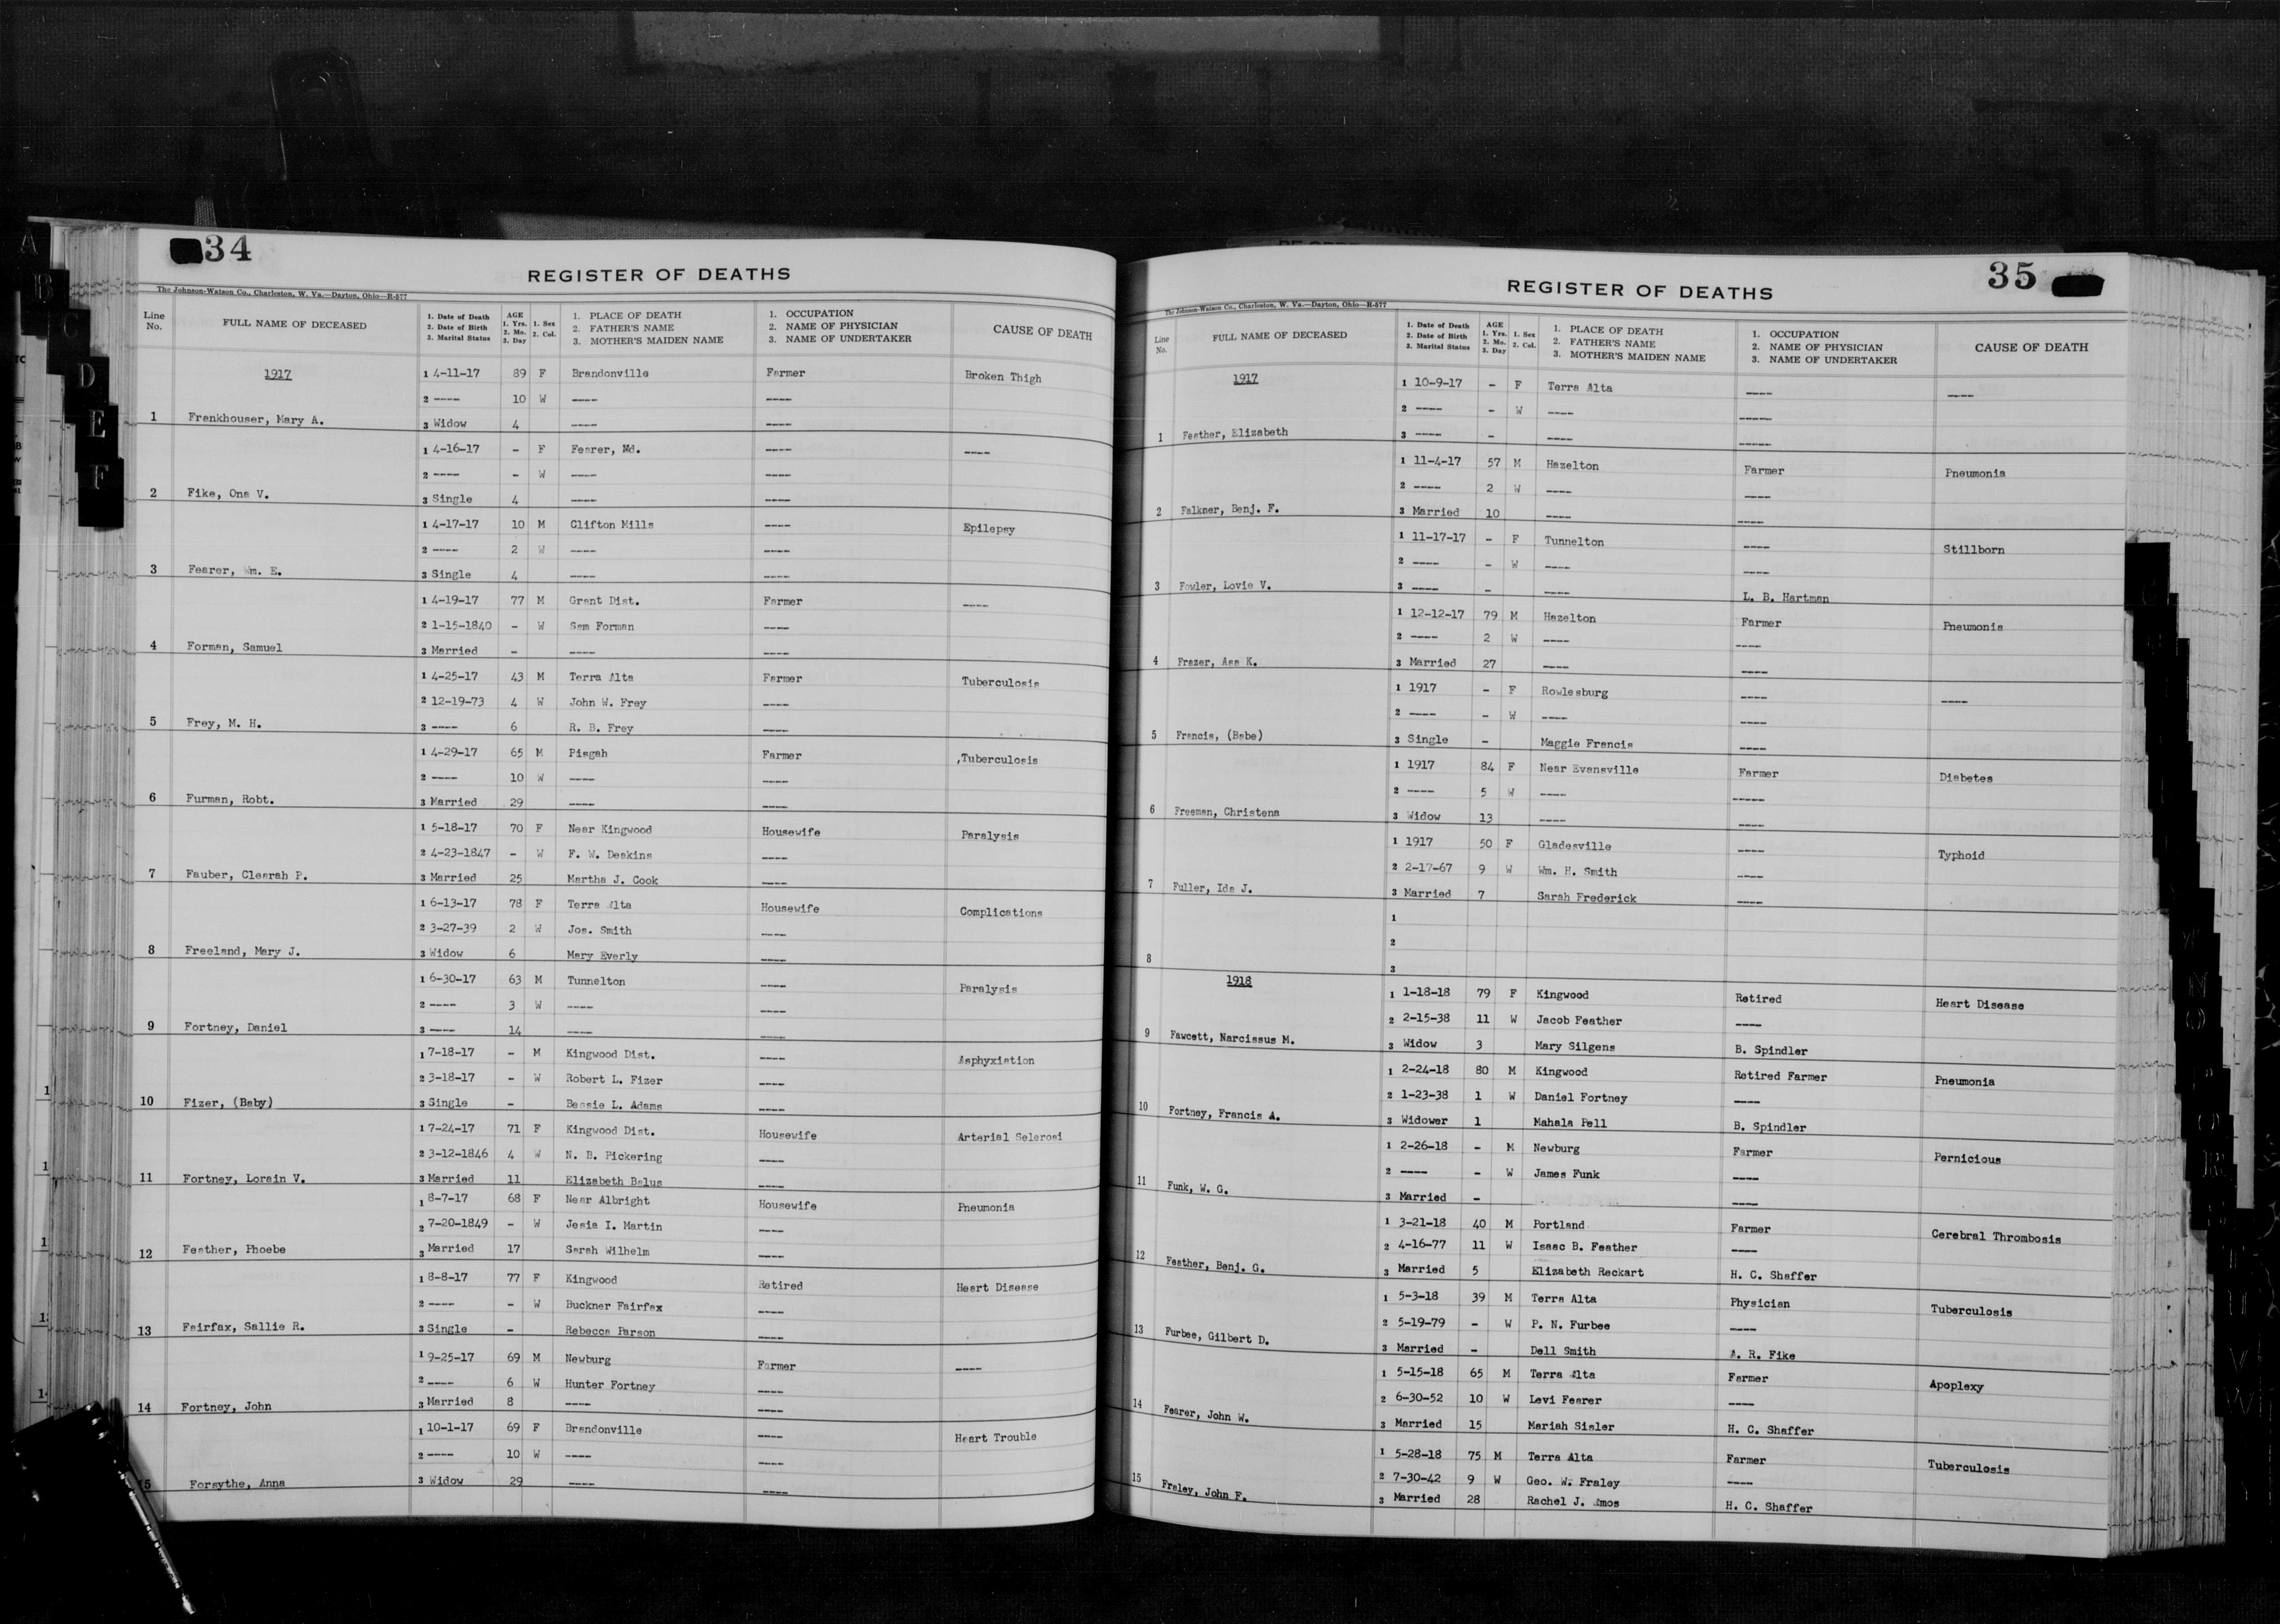 34
REGISTER OF DEATHS
The Johnson-Watson Co., Charleston, W. Va.—Dayton, Ohio—R-577
Line No. FULL NAME OF DECEASED 1. Date of Death 2. Date of Birth 3. Marital Status AGE 1. Yrs. 2. Mo. 3. Day 1. Sex 2. Col. 1. PLACE OF DEATH 2. FATHER'S NAME 3. MOTHER'S MAIDEN NAME 1. OCCUPATION 2. NAME OF PHYSICIAN 3. NAME OF UNDERTAKER CAUSE OF DEATH
1917 1 4-11-17 89 F Brandonville Farmer Broken Thigh
2 ---- 10 W ---- ----
1 Frankhouser, Mary A. 3 Widow 4 ---- ----
1 4-16-17 - F Fearer, Md. ---- ----
2 ---- - W ---- ----
2 Fike, Ona V. 3 Single 4 ---- ----
1 4-17-17 10 M Clifton Mills ---- Epilepsy
2 ---- 2 W ---- ----
3 Fearer, Wm. E. 3 Single 4 ---- ----
1 4-19-17 77 M Grant Dist. Farmer ----
2 1-15-1840 - W Sam Forman ----
4 Forman, Samuel 3 Married - ---- ----
1 4-25-17 43 M Terra Alta Farmer Tuberculosis
2 12-19-73 4 W John W. Frey ----
5 Frey, M. H. 3 ---- 6 R. B. Frey ----
1 4-29-17 65 M Pisgah Farmer ,Tuberculosis
2 ---- 10 W ---- ----
6 Furman, Robt. 3 Married 29 ---- ----
1 5-18-17 70 F Near Kingwood Housewife Paralysis
2 4-23-1847 - W F. W. Deakins ----
7 Fauber, Clearah P. 3 Married 25 Martha J. Cook ----
1 6-13-17 78 F Terra Alta Housewife Complications
2 3-27-39 2 W Jos. Smith ----
8 Freeland, Mary J. 3 Widow 6 Mary Everly ----
1 6-30-17 63 M Tunnelton ---- Paralysis
2 ---- 3 W ---- ----
9 Fortney, Daniel 3 ---- 14 ---- ----
1 7-18-17 - M Kingwood Dist. ---- Asphyxiation
2 3-18-17 - W Robert L. Fizer ----
10 Fizer, (Baby) 3 Single - Bessie L. Adams ----
1 7-24-17 71 F Kingwood Dist. Housewife Arterial Selerosi
2 3-12-1846 4 W N. B. Pickering ----
11 Fortney, Lorain V. 3 Married 11 Elizabeth Balus ----
1 8-7-17 68 F Near Albright Housewife Pneumonia
2 7-20-1849 - W Jesia I. Martin ----
12 Feather, Phoebe 3 Married 17 Sarah Wilhelm ----
1 8-8-17 77 F Kingwood Retired Heart Disease
2 ---- - W Buckner Fairfax ----
13 Fairfax, Sallie R. 3 Single - Rebecca Parson ----
1 9-25-17 69 M Newburg Farmer ----
2 ---- 6 W Hunter Fortney ----
14 Fortney, John 3 Married 8 ---- ----
1 10-1-17 69 F Brandonville ---- Heart Trouble
2 ---- 10 W ---- ----
5 Forsythe, Anna 3 Widow 29 ---- ----
35
REGISTER OF DEATHS
The Johnson-Watson Co., Charleston, W. Va.—Dayton, Ohio—R-577
Line No. FULL NAME OF DECEASED 1. Date of Death 2. Date of Birth 3. Marital Status AGE 1. Yrs. 2. Mo. 3. Day 1. Sex 2. Col. 1. PLACE OF DEATH 2. FATHER'S NAME 3. MOTHER'S MAIDEN NAME 1. OCCUPATION 2. NAME OF PHYSICIAN 3. NAME OF UNDERTAKER CAUSE OF DEATH
1917 1 10-9-17 - F Terra Alta ---- ----
2 ---- - W ---- ----
1 Feather, Elizabeth 3 ---- - ---- ----
1 11-4-17 57 M Hazelton Farmer Pneumonia
2 ---- 2 W ---- ----
2 Falkner, Benj. F. 3 Married 10 ---- ----
1 11-17-17 - F Tunnelton ---- Stillborn
2 ---- - W ---- ----
3 Fowler, Lovie V. 3 ---- - ---- L. B. Hartman
1 12-12-17 79 M Hazelton Farmer Pneumonia
2 ---- 2 W ---- ----
4 Frazer, Asa K. 3 Married 27 ---- ----
1 1917 - F Rowlesburg ---- ----
2 ---- - W ---- ----
5 Francis, (Babe) 3 Single - Maggie Francis ----
1 1917 84 F Near Evansville Farmer Diabetes
2 ---- 5 W ---- ----
6 Freeman, Christena 3 Widow 13 ---- ----
1 1917 50 F Gladesville ---- Typhoid
2 2-17-67 9 W Wm. H. Smith ----
7 Fuller, Ida J. 3 Married 7 Sarah Frederick ----
1
2
8 3
1918 1 1-18-18 79 F Kingwood Retired Heart Disease
2 2-15-38 11 W Jacob Feather ----
9 Fawcett, Narcissus M. 3 Widow 3 Mary Silgens B. Spindler
1 2-24-18 80 M Kingwood Retired Farmer Pneumonia
2 1-23-38 1 W Daniel Fortney ----
10 Fortney, Francis A. 3 Widower 1 Mahala Pell B. Spindler
1 2-26-18 - M Newburg Farmer Pernicious
2 ---- - W James Funk ----
11 Funk, W. G. 3 Married - ----
1 3-21-18 40 M Portland Farmer Cerebral Thrombosis
2 4-16-77 11 W Isaac B. Feather ----
12 Feather, Benj. G. 3 Married 5 Elizabeth Reckart H. C. Shaffer
1 5-3-18 39 M Terra Alta Physician Tuberculosis
2 5-19-79 - W P. N. Furbee ----
13 Furbee, Gilbert D. 3 Married - Dell Smith A. R. Fike
1 5-15-18 65 M Terra Alta Farmer Apoplexy
2 6-30-52 10 W Levi Fearer ----
14 Fearer, John W. 3 Married 15 Mariah Sisler H. C. Shaffer
1 5-28-18 75 M Terra Alta Farmer Tuberculosis
2 7-30-42 9 W Geo. W. Fraley ----
15 Fraley, John F. 3 Married 28 Rachel J. Amos H. C. Shaffer
A
B
C
D
E
F